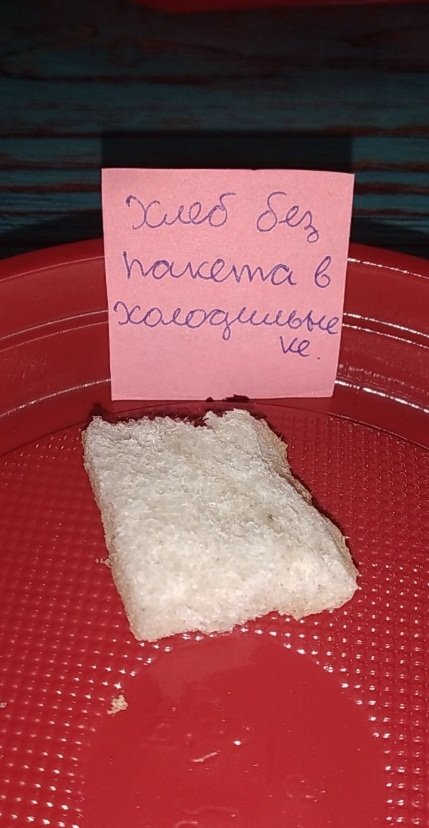 Хлеб без
пакета в
холодильне
ке.